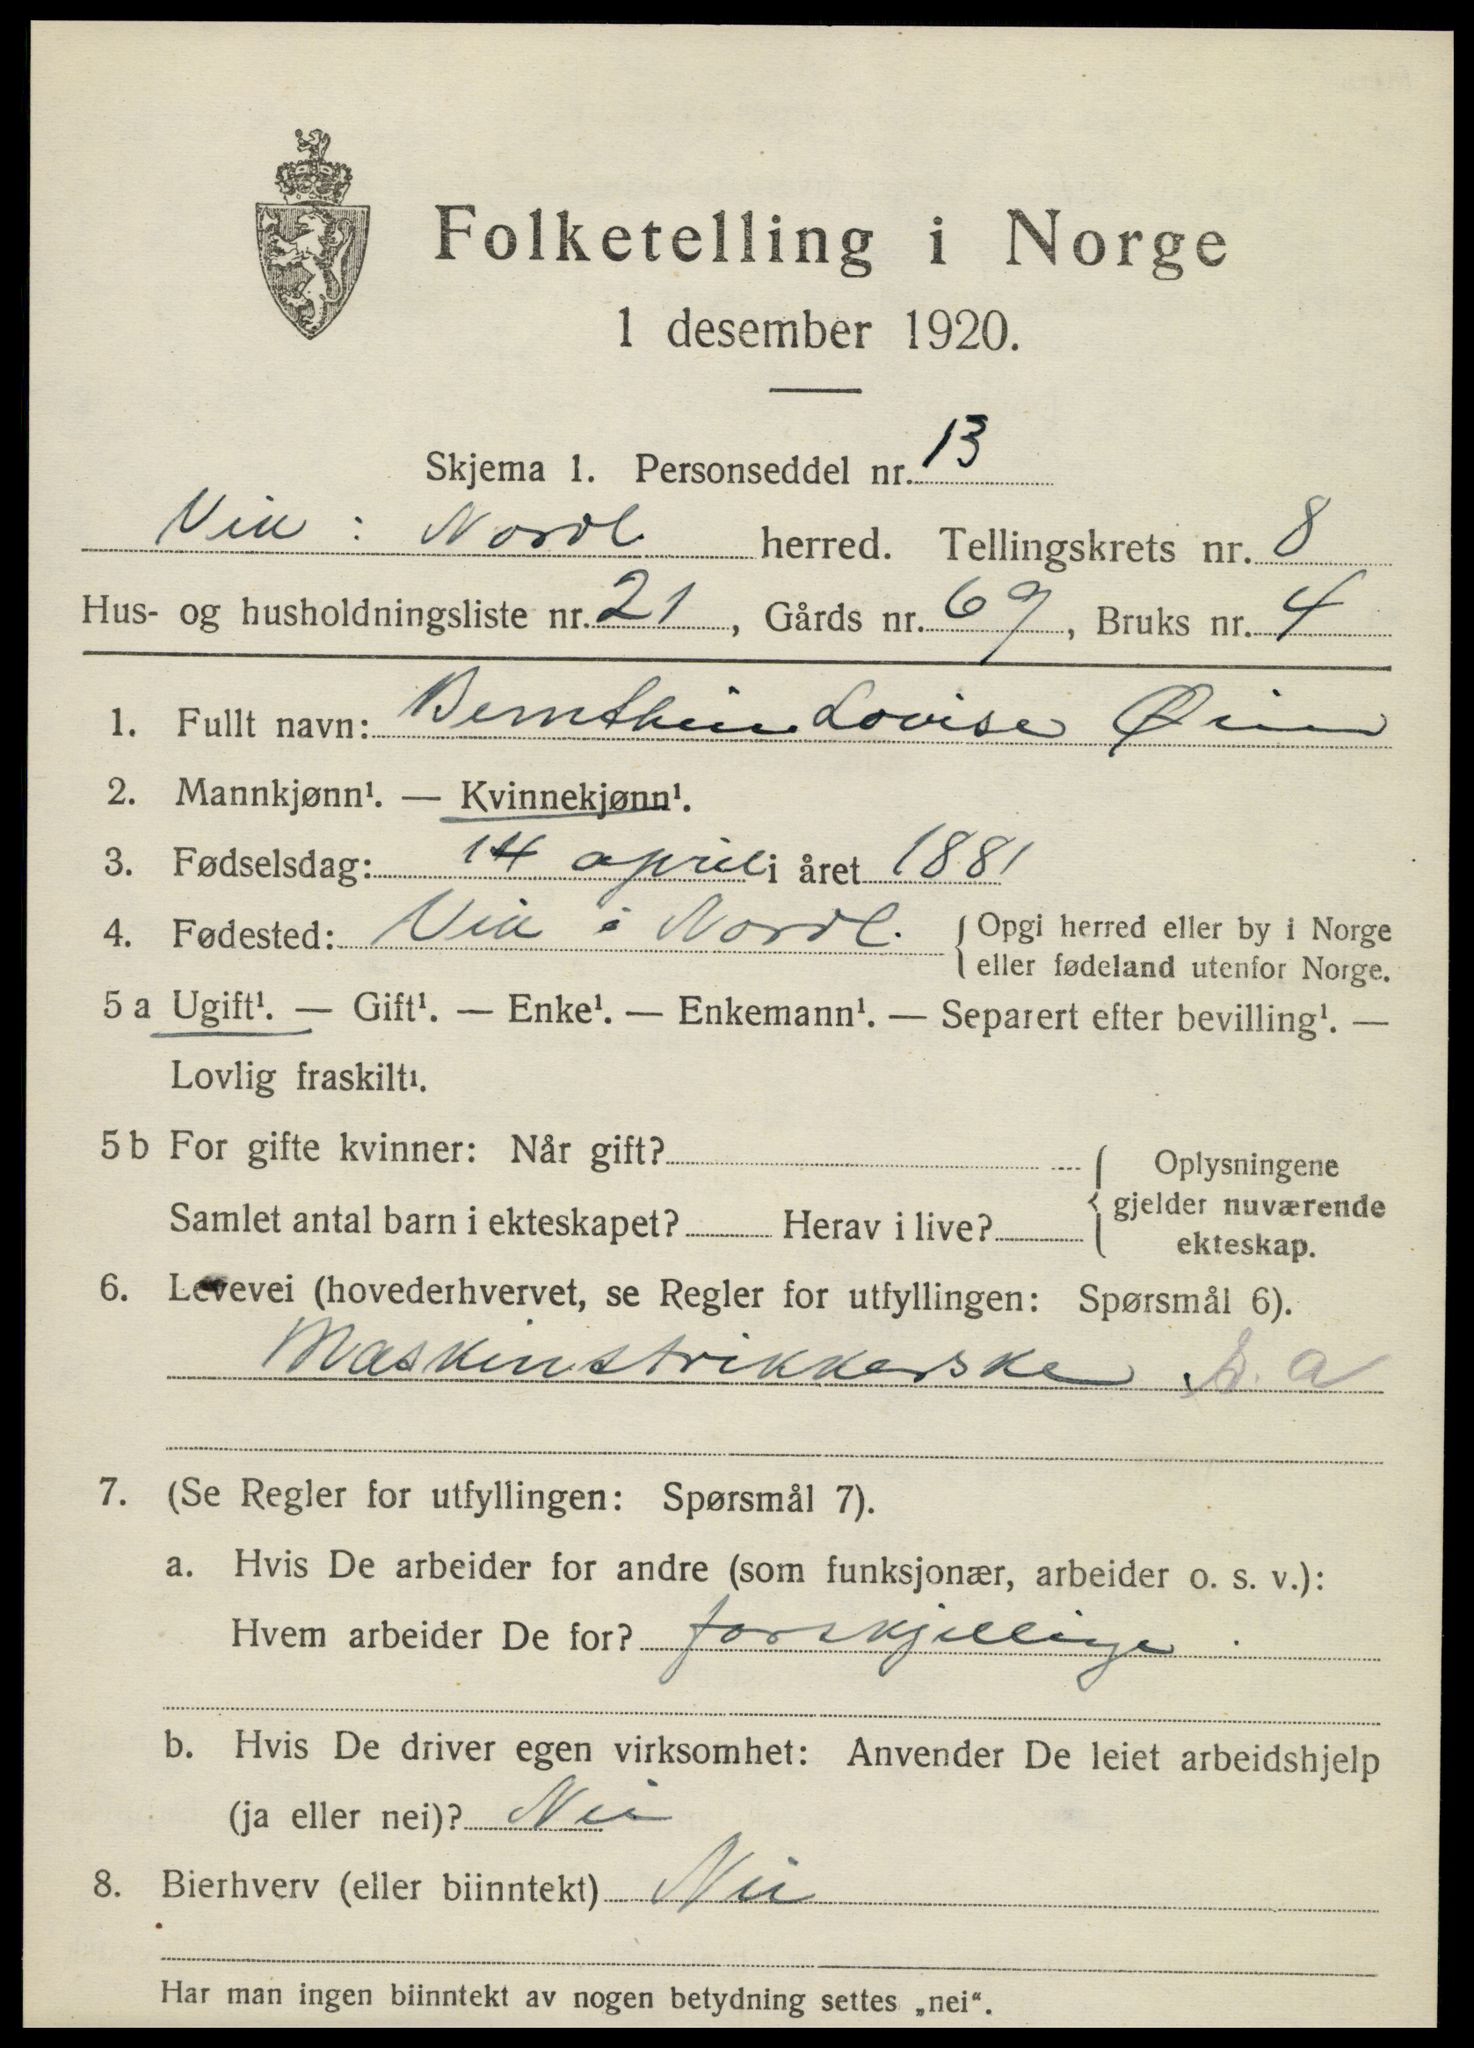 Folketelling i Norge
1 desember 1920.
Skjema 1. Personseddel nr. 13
Vik i Nordl. herred. Tellingskrets nr. 8
Hus- og husholdningsliste nr. 21, Gårds nr. 69, Bruks nr. 4
1. Fullt navn: Bernthine Lovise Øien
2. Mannkjønn¹. — Kvinnekjønn¹.
3. Fødselsdag: 14 april i året 1881
4. Fødested: Vik i Nordl. { Opgi herred eller by i Norge
eller fødeland utenfor Norge.
5 a Ugift¹. — Gift¹. — Enke¹. — Enkemann¹. — Separert efter bevilling¹. —
Lovlig fraskilt¹.
5 b For gifte kvinner: Når gift?
Samlet antal barn i ekteskapet? Herav i live?
{ Oplysningene
gjelder nuværende
ekteskap.
6. Levevei (hovederhvervet, se Regler for utfyllingen: Spørsmål 6).
Maskinstrikkerske a
7. (Se Regler for utfyllingen: Spørsmål 7).
a. Hvis De arbeider for andre (som funksjonær, arbeider o. s. v.):
Hvem arbeider De for? forskjellige.
b. Hvis De driver egen virksomhet: Anvender De leiet arbeidshjelp
(ja eller nei)? Nei
8. Bierhverv (eller biinntekt) Nei
Har man ingen biinntekt av nogen betydning settes „nei“.